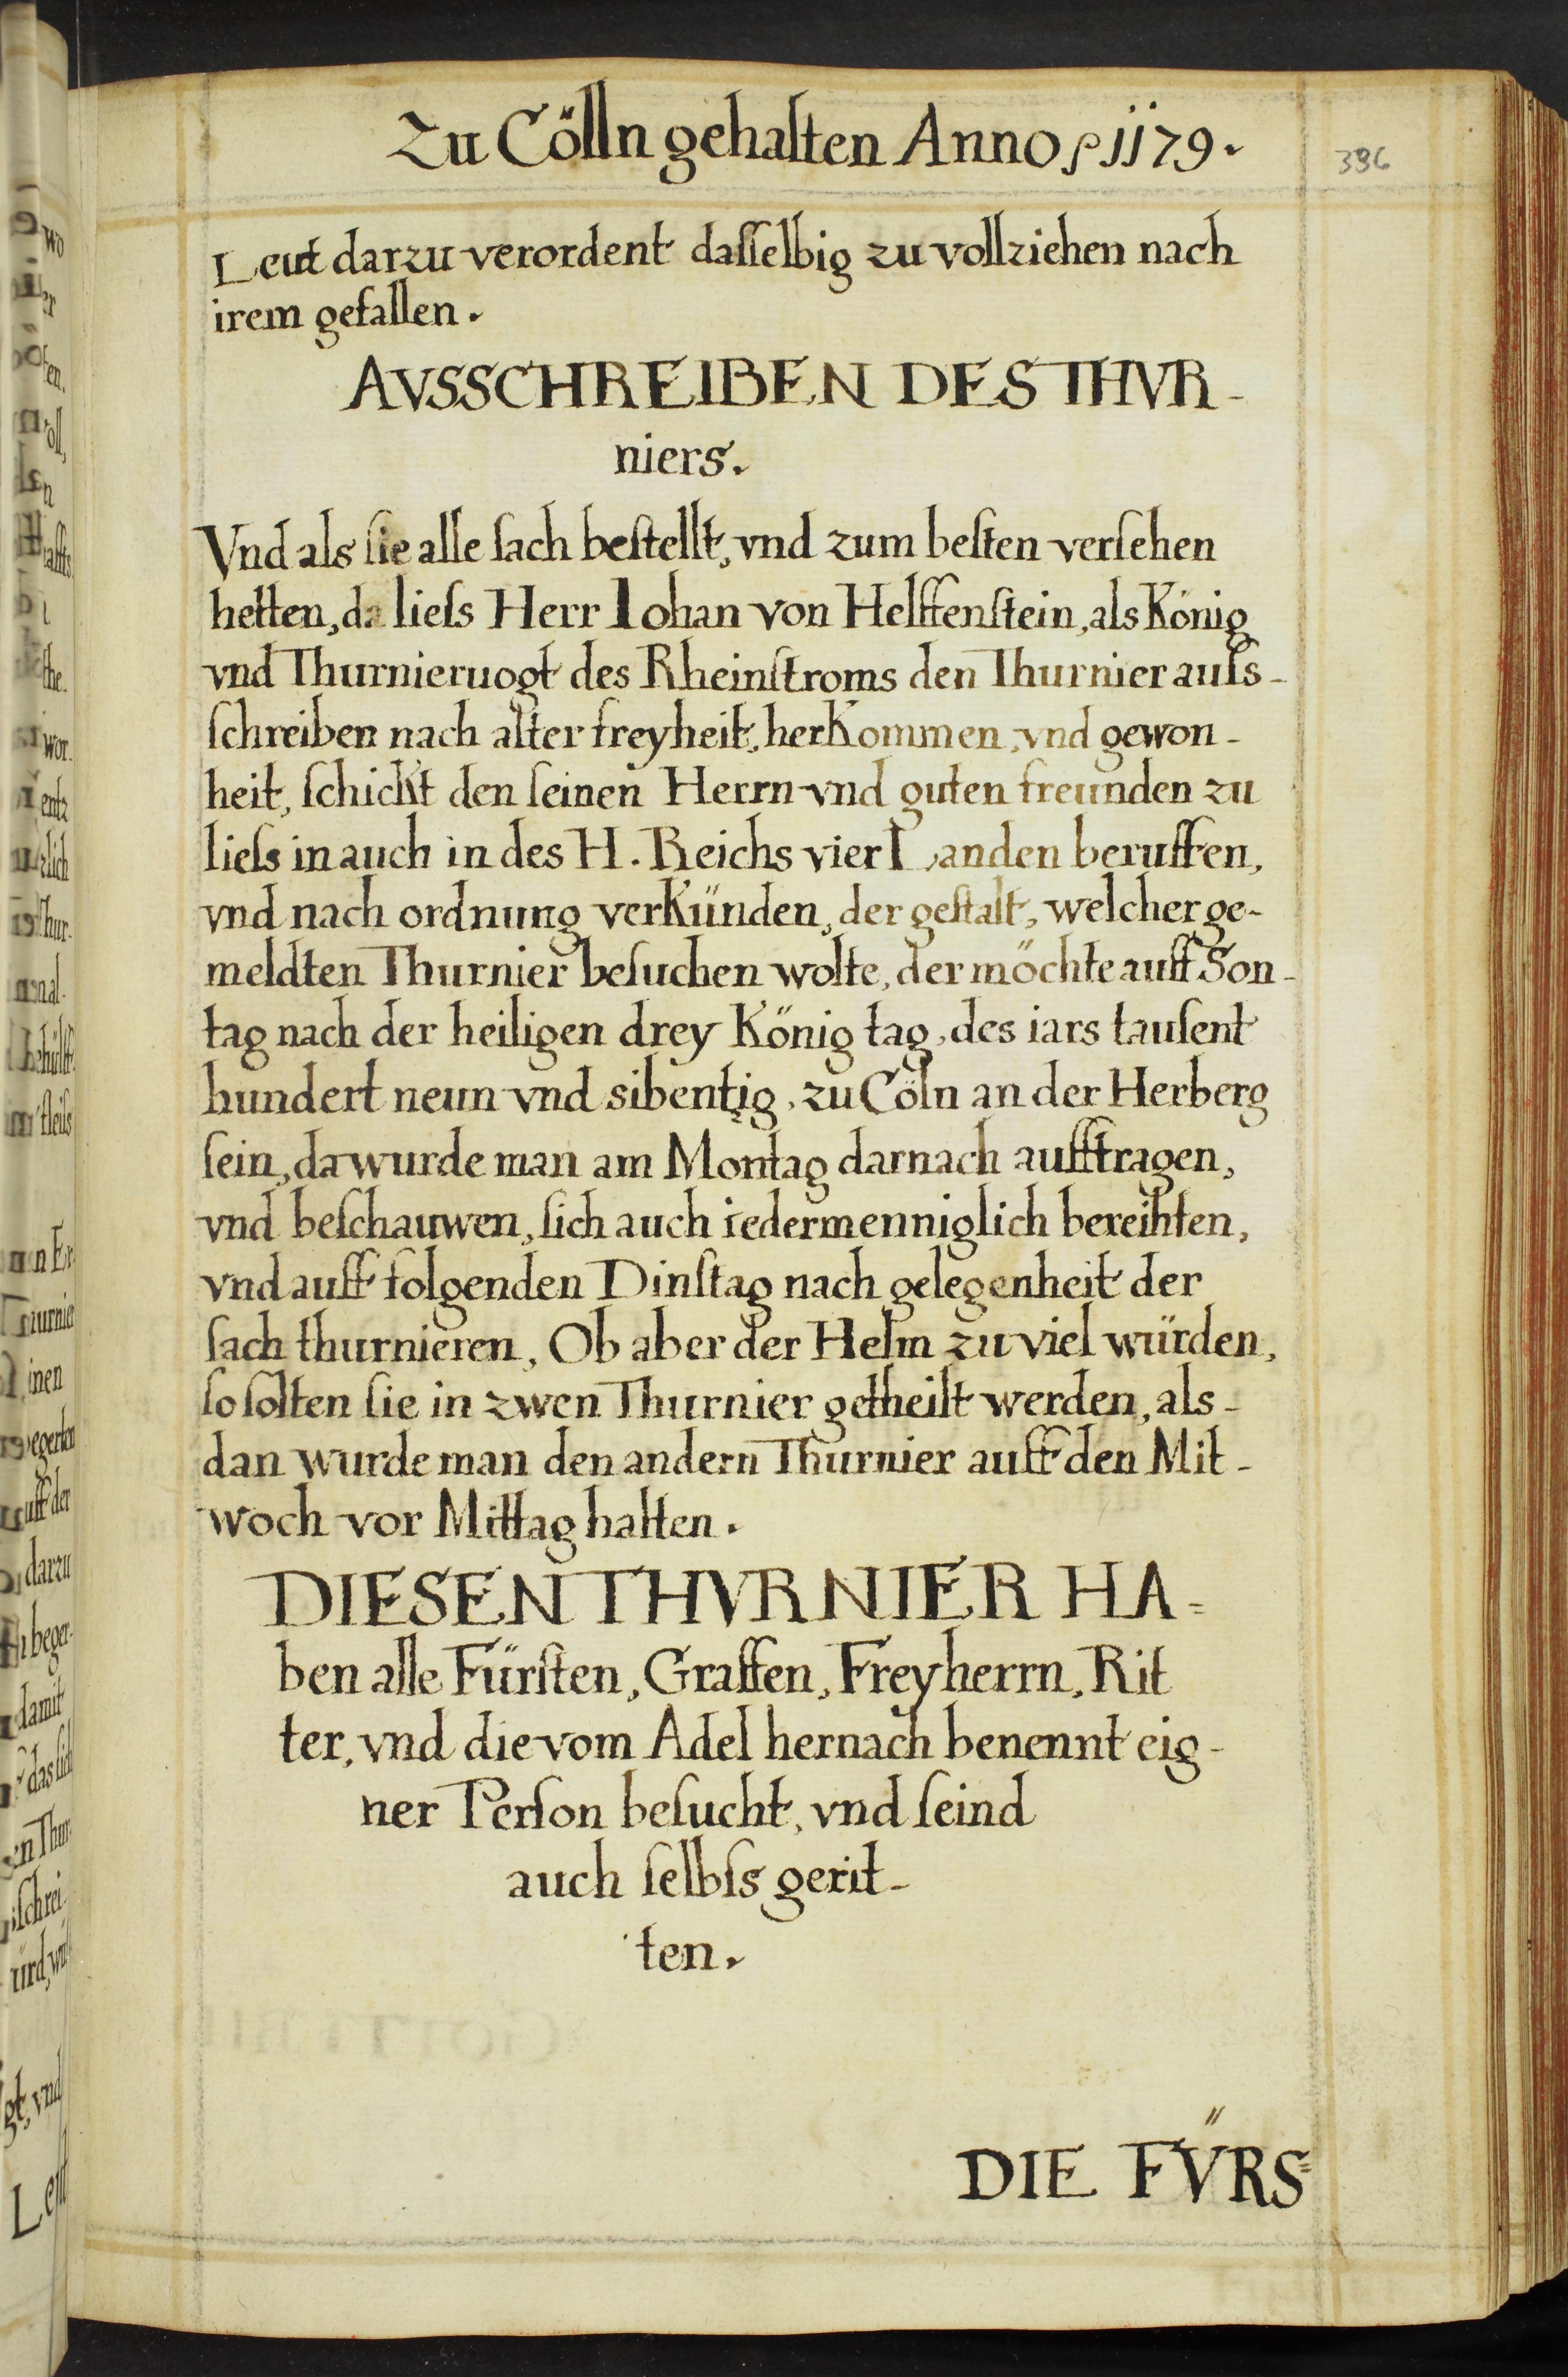 Zu Cölln gehalten Anno 1179.
396
Leut darzu verordent dasselbig zu vollziehen nach
irem gefallen.
AVSSCHREIBEN DES THVR-
niers.
Vnd als sie alle sach bestellt, vnd zum besten versehen
hetten, da liess Herr Iohan von Helffenstein, als König
vnd Thurnieruogt des Rheinstroms den Thurnier auss-
schreiben nach alter freyheit, herkommen, vnd gewon-
heit, schickt den seinen Herrn vnd guten freunden zu
liess in auch in des H. Reichs vier Landen beruffen,
vnd nach ordnung verkünden, der gestalt, welcher ge-
meldten Thurnier besuchen wolte, der möchte auff Son-
tag nach der heiligen drey König tag, des iars tausent
hundert neun vnd sibentzig, zu Cöln an der Herberg
sein, da wurde man am Montag darnach aufftragen,
vnd beschauwen, sich auch iedermenniglich bereihten,
vnd auff folgenden Dinstag nach gelegenheit der
sach thurnieren, Ob aber der Helm zu viel würden,
so solten sie in zwen Thurnier getheilt werden, als-
dan wurde man den andern Thurnier auff den Mit-
woch vor Mittag halten.
DIESEN THVRNIER HA=
ben alle Fürsten, Graffen, Freyherrn, Rit
ter, vnd die vom Adel hernach benennt eig-
ner Person besucht, vnd seind
auch selbss gerit-
ten.
DIE FV̈RS=